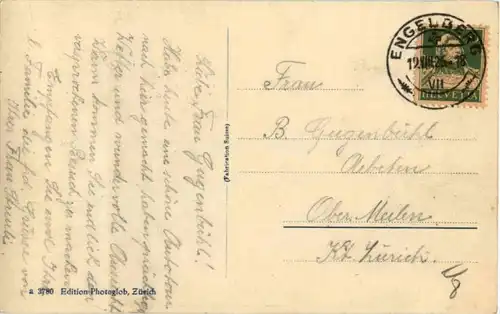 Liebe Frau Gugenbühl!
Habe heute eine schöne Autotour
nach hier gemacht, haben prächtiges
Wetter und wundervolle Aussicht.
Wann kommen Sie endlich den
versprochenen Besuch zu machen.
Empfangen Sie und Ihre
l. Familie die Grüsse von
Ihrer Frau
a 3780 Edition Photoglob, Zürich
(Fabrication Suisse)
ENGELBERG
VII
HELVETIA
Frau
B. Gugenbühl
Aebeten
Ober Meilen
Kt. Zürich